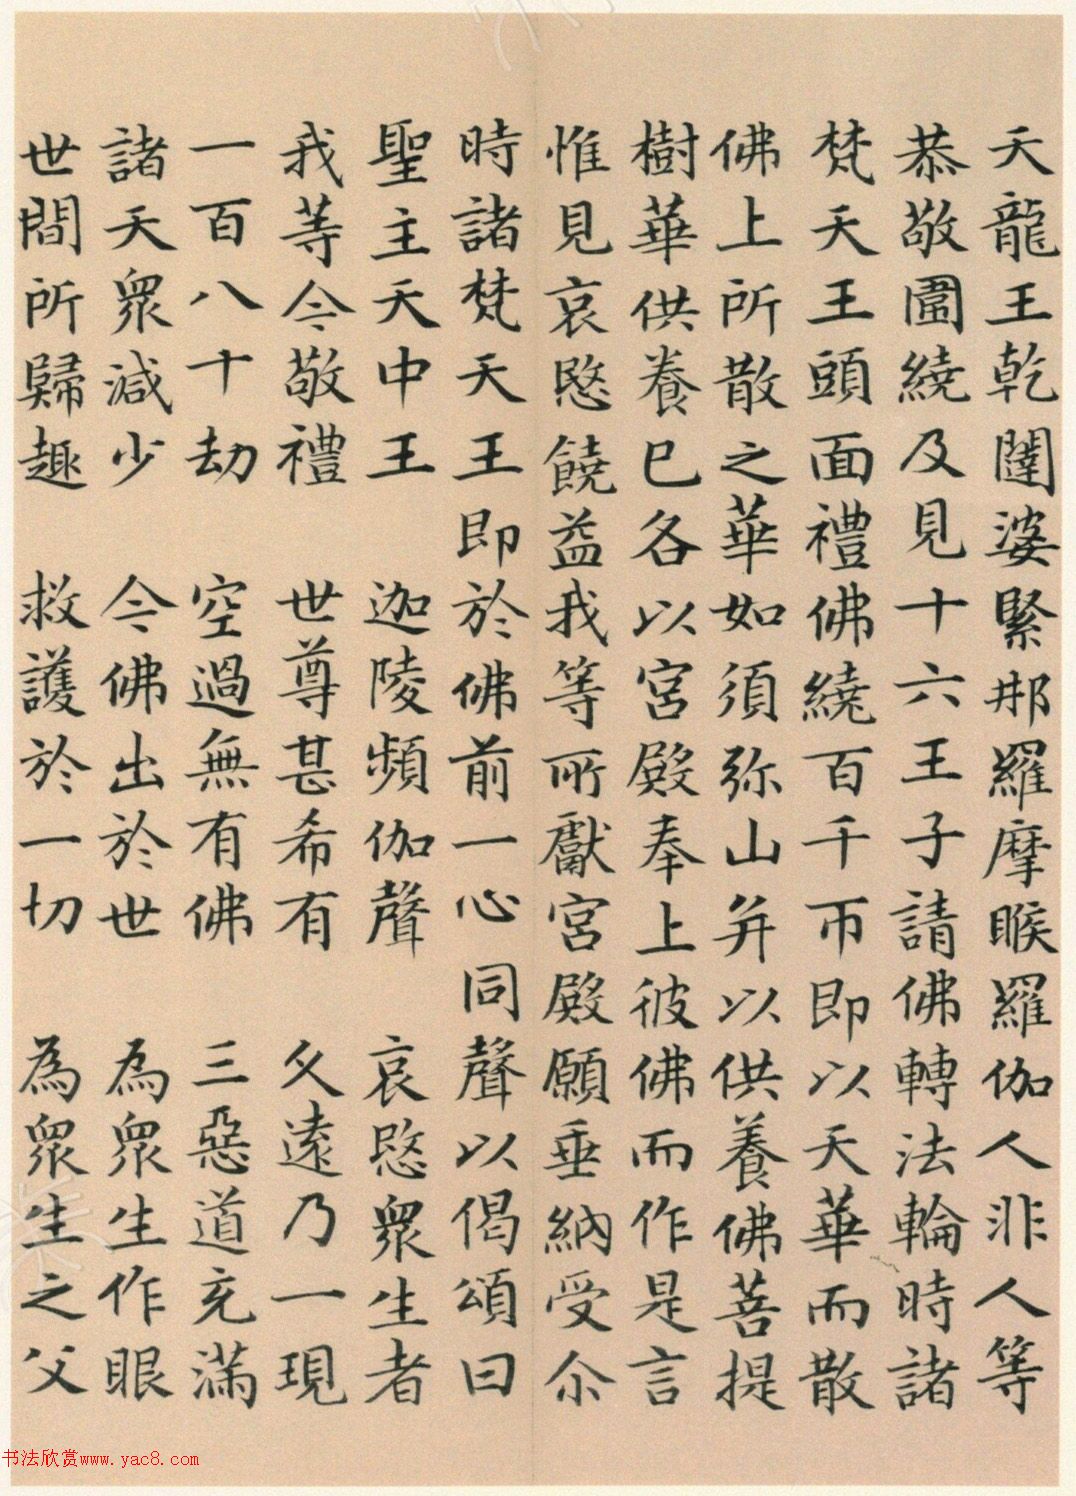 天龍王乾闥婆緊那羅摩睺羅伽人非人等
恭敬圍繞及見十六王子請佛轉法輪時諸
梵天王頭面禮佛繞百千帀即以天華而散
佛上所散之華如須弥山并以供養佛菩提
樹華供養已各以宮殿奉上彼佛而作是言
惟見哀愍饒益我等所獻宮殿願垂納受尒
時諸梵天王即於佛前一心同聲以偈頌曰
聖主天中王　迦陵頻伽聲　哀愍眾生者
我等今敬禮　世尊甚希有　久遠乃一現
一百八十劫　空過無有佛　三惡道充滿
諸天眾減少　今佛出於世　為眾生作眼
世間所歸趣　救護於一切　為眾生之父
书法欣赏www.yac8.com